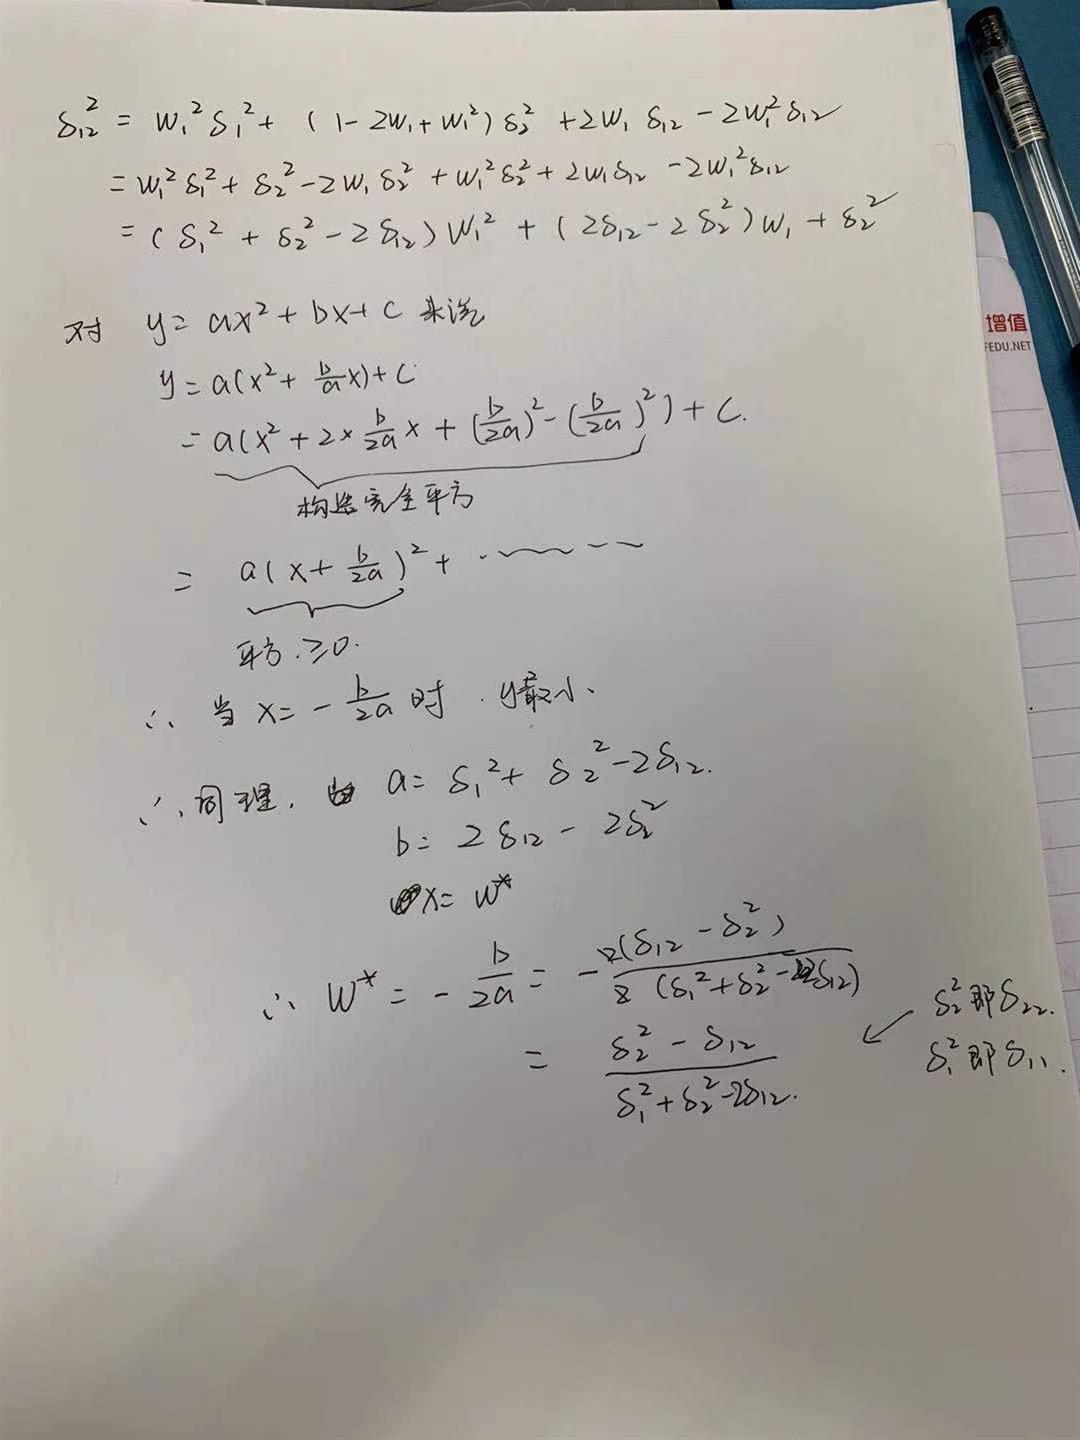 δ₁₂² = W₁²δ₁² + (1-2W₁+W₁²)δ₂² +2W₁ δ₁₂ -2W₁²δ₁₂
= W₁²δ₁² + δ₂² -2W₁ δ₂² + W₁²δ₂² + 2W₁δ₁₂ -2W₁²δ₁₂
= (δ₁² + δ₂² -2δ₁₂)W₁² + (2δ₁₂ -2δ₂²)W₁ + δ₂²
对 y= ax²+bx+c 来说
y= a(x²+ b/a x)+c
= a(x²+2× b/2a x + (b/2a)² - (b/2a)²) + c.
构造完全平方
= a(x+ b/2a)² + ·-----
平方.≥0.
∴ 当 x= - b/2a 时 . y最小.
∴ 同理. 由 a= δ₁²+ δ₂²-2δ₁₂.
b= 2δ₁₂ - 2δ₂²
x= W*
∴ W* = - b/2a = - 2(δ₁₂ -δ₂²) / 2 (δ₁²+δ₂²-2δ₁₂)
= δ₂² - δ₁₂ / δ₁²+δ₂²-2δ₁₂.
δ₂² 即 δ₂₂.
δ₁² 即 δ₁₁.
增值
FEDU.NET